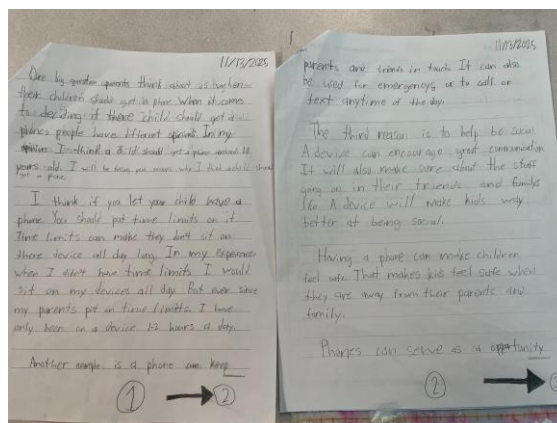 11/13/2025
One big question parents think about is is when
their children should get a phone. When it comes
to deciding if there child should get a
phones people have different opinions. In my
opinion I think a child should get a phone around
years old. I will be giving you reasons why I think a child should
get a phone.
I think if you let your child have a
phone. You should put time limits on it
Time limits can make they don't sit on
there device all day long. In my experience
when I didn't have time limits I would
sit on my devices all day. But ever since
my parents put on time limits. I have
only been on a device 1-2 hours a day.
Another example is a phone can keep
1 2
11/13/2025
parents and friends in touch. It can also
be used for emergencys or to call or
text anytime of the day.
The third reason is to help be social.
A device can encourage great communication
It will also make sure about the stuff
going on in their friends and familys
life. A device will make kids way
better at being social.
Having a phone can make children
feel safe. That makes kids feel safe when
they are away from their parents and
family.
Phones can serve as a opportunity
2